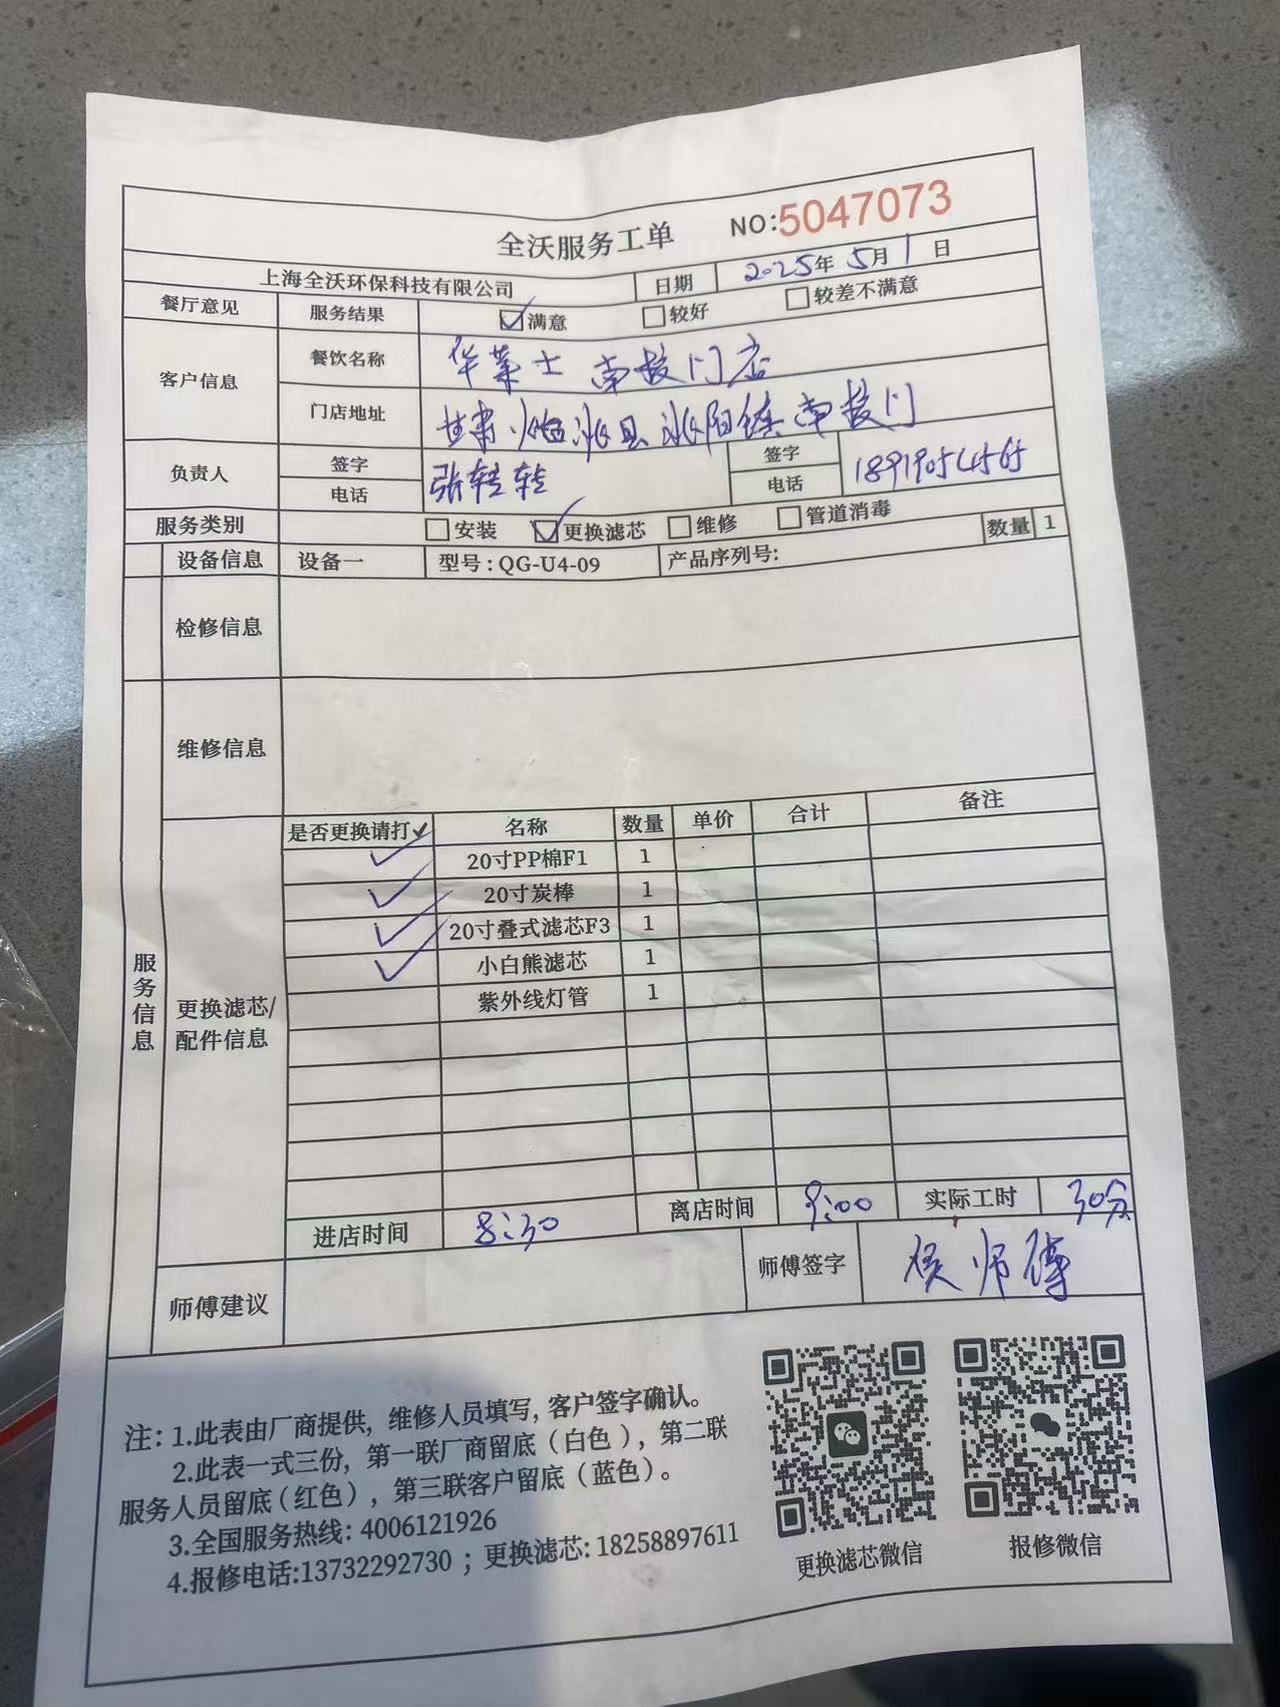 全沃服务工单 NO:5047073
上海全沃环保科技有限公司 日期 2025年5月1日
餐厅意见 服务结果 ☑满意 □较好 □较差不满意
客户信息 餐饮名称 华莱士 南校门店
门店地址 甘肃 临洮县 洮阳镇 南校门
负责人 签字 张转转 签字
电话 电话 18919054565
服务类别 □安装 ☑更换滤芯 □维修 □管道消毒
设备信息 设备一 型号:QG-U4-09 产品序列号: 数量 1
检修信息
维修信息
服务信息
更换滤芯/
配件信息
是否更换请打✓ 名称 数量 单价 合计 备注
✓ 20寸PP棉F1 1
✓ 20寸炭棒 1
✓ 20寸叠式滤芯F3 1
✓ 小白熊滤芯 1
紫外线灯管 1
进店时间 8:30 离店时间 9:00 实际工时 30分
师傅建议 师傅签字 侯师傅
注: 1.此表由厂商提供, 维修人员填写, 客户签字确认。
2.此表一式三份, 第一联厂商留底(白色), 第二联
服务人员留底(红色), 第三联客户留底(蓝色)。
3.全国服务热线: 4006121926
4.报修电话:13732292730 ; 更换滤芯: 18258897611
更换滤芯微信 报修微信